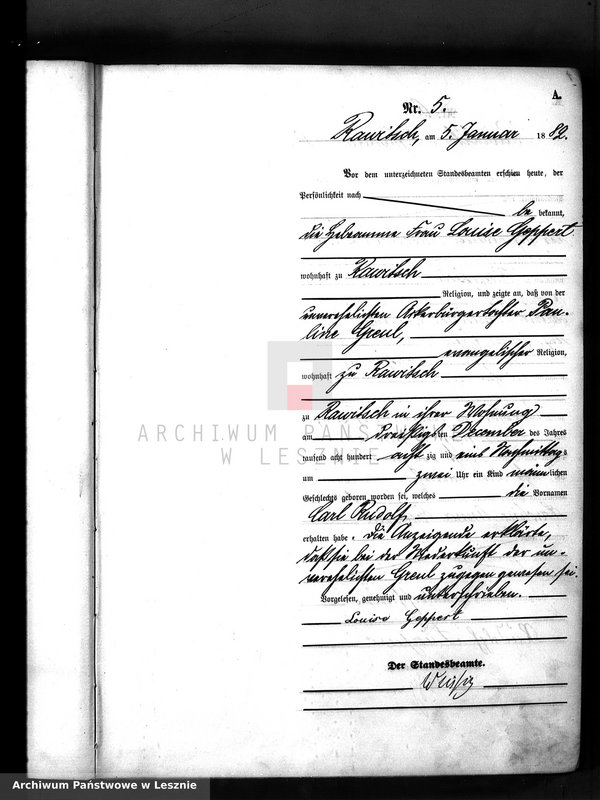 A.
Nr. 5.
Rawitsch, am 5. Januar 1882.
Vor dem unterzeichneten Standesbeamten erschien heute, der
Persönlichkeit nach
be kannt,
die Hebeamme Frau Louise Geppert
wohnhaft zu Rawitsch
Religion, und zeigte an, daß von der
unverehelichten Ackerbürgertochter Pau-
line Greul,
evangelischer Religion,
wohnhaft zu Rawitsch
zu Rawitsch in ihrer Wohnung
am dreißigsten December des Jahres
tausend acht hundert achtzig und eins Nachmittags
um zwei Uhr ein Kind männlichen
Geschlechts geboren worden sei, welches die Vornamen
Carl Rudolf
erhalten habe. Die Anzeigende erklärte,
daß sie bei der Niederkunft der un-
verehelichten Greul zugegen gewesen sei.
Vorgelesen, genehmigt und unterschrieben.
Louise Geppert
Der Standesbeamte.
ARCHIWUM PAŃSTWOWE
W LESZNIE
Archiwum Państwowe w Lesznie